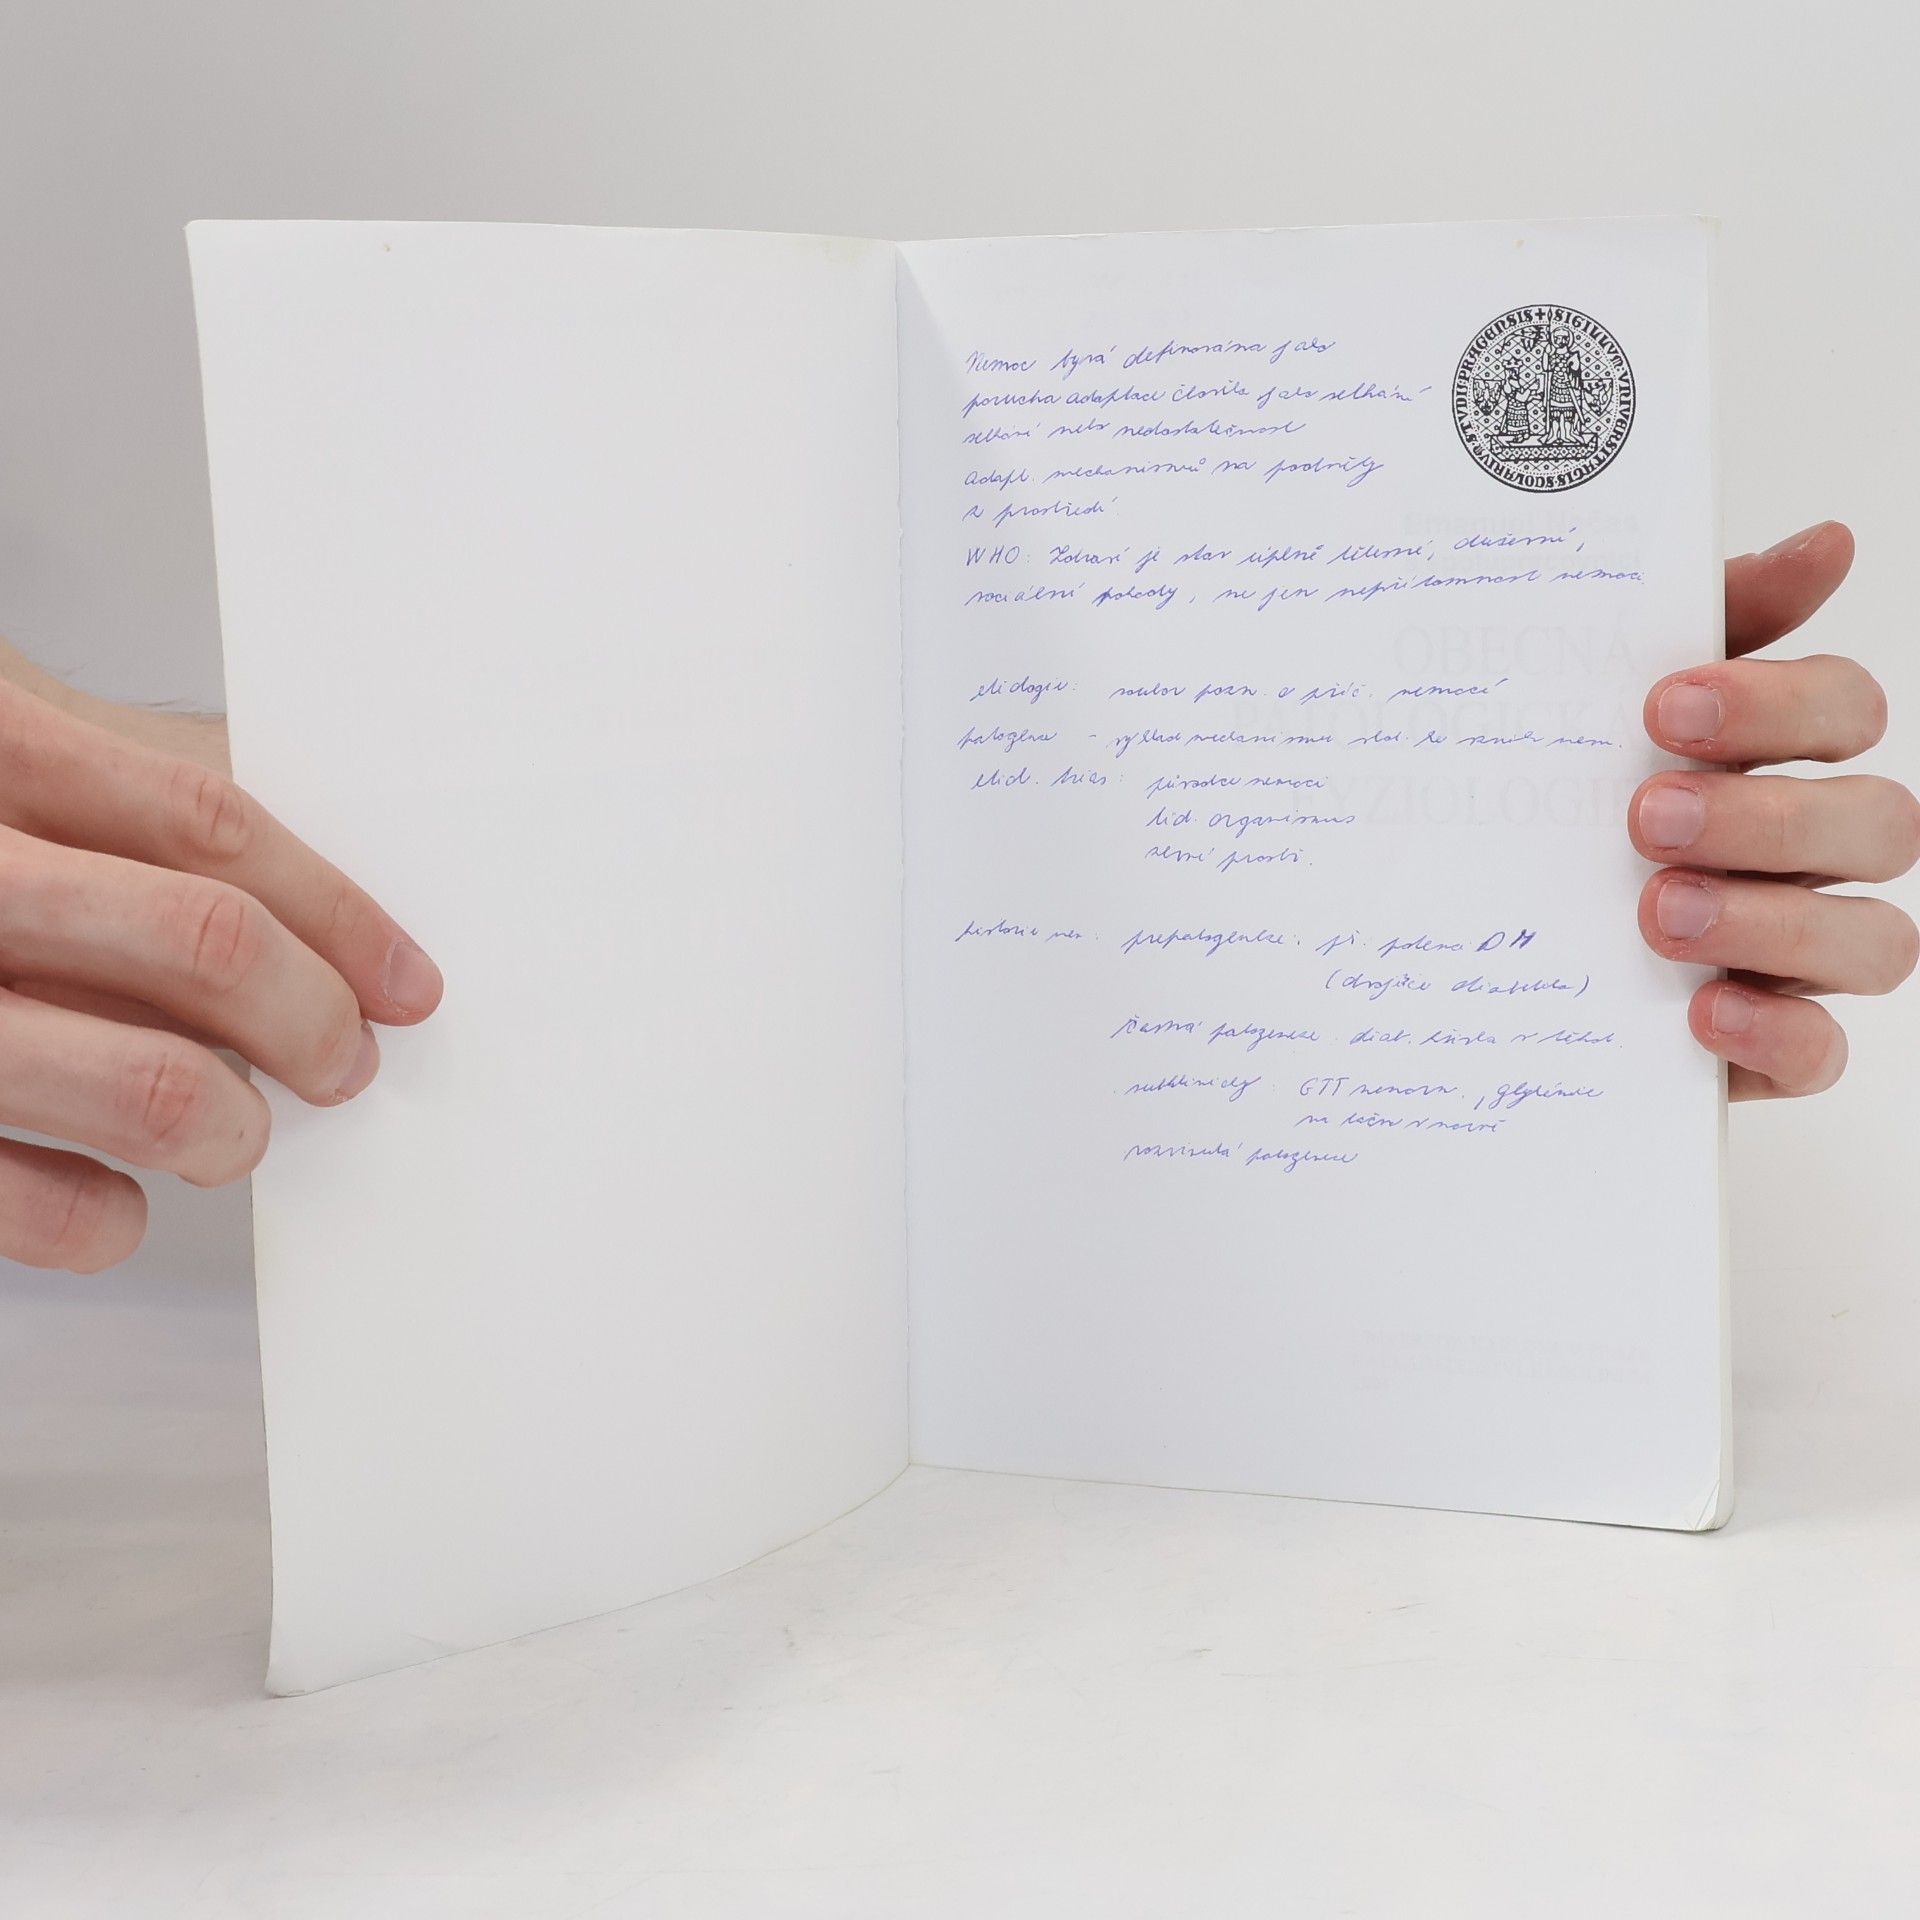 SIGILLVM·VNIVERSITATIS·SCOLARIVM·STVDII·PRAGENSIS
Nemoc bývá definována jako
porucha adaptace člověka jako selhání
selhání nebo nedostatečnost
adapt. mechanismů na podněty
z prostředí
WHO: Zdraví je stav úplné tělesné, duševní,
sociální pohody, ne jen nepřítomnost nemoci.
etiologie: soubor pozn. o příč. nemocí
patogeneze - výklad mechanismu vzniku nem.
etiol. trias: původce nemoci
lid. organismus
zevní prostř.
historie nem: prepatogeneze: př: potenc. DM
(dvojice diabetika)
časná patogeneze: diab. křivka v těhot.
subklinický: GTT nenorm., glykémie
na lačno v normě
rozvinutá patogeneze
Emanuel Nečas
OBECNÁ
PATOLOGICKÁ
FYZIOLOGIE